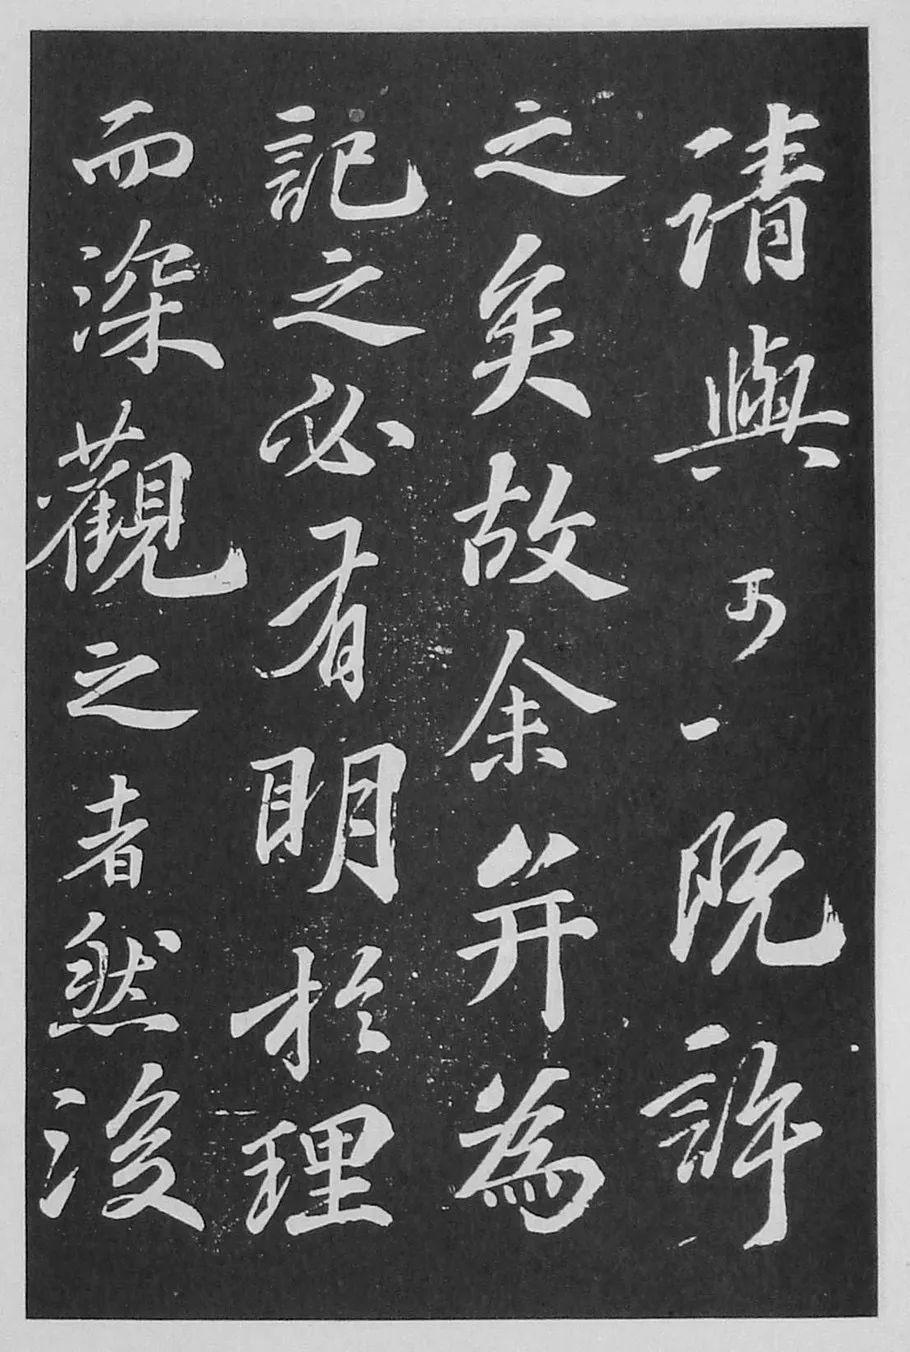 請與可々既許
之矣故余并為
記之必有明於理
而深觀之者然後